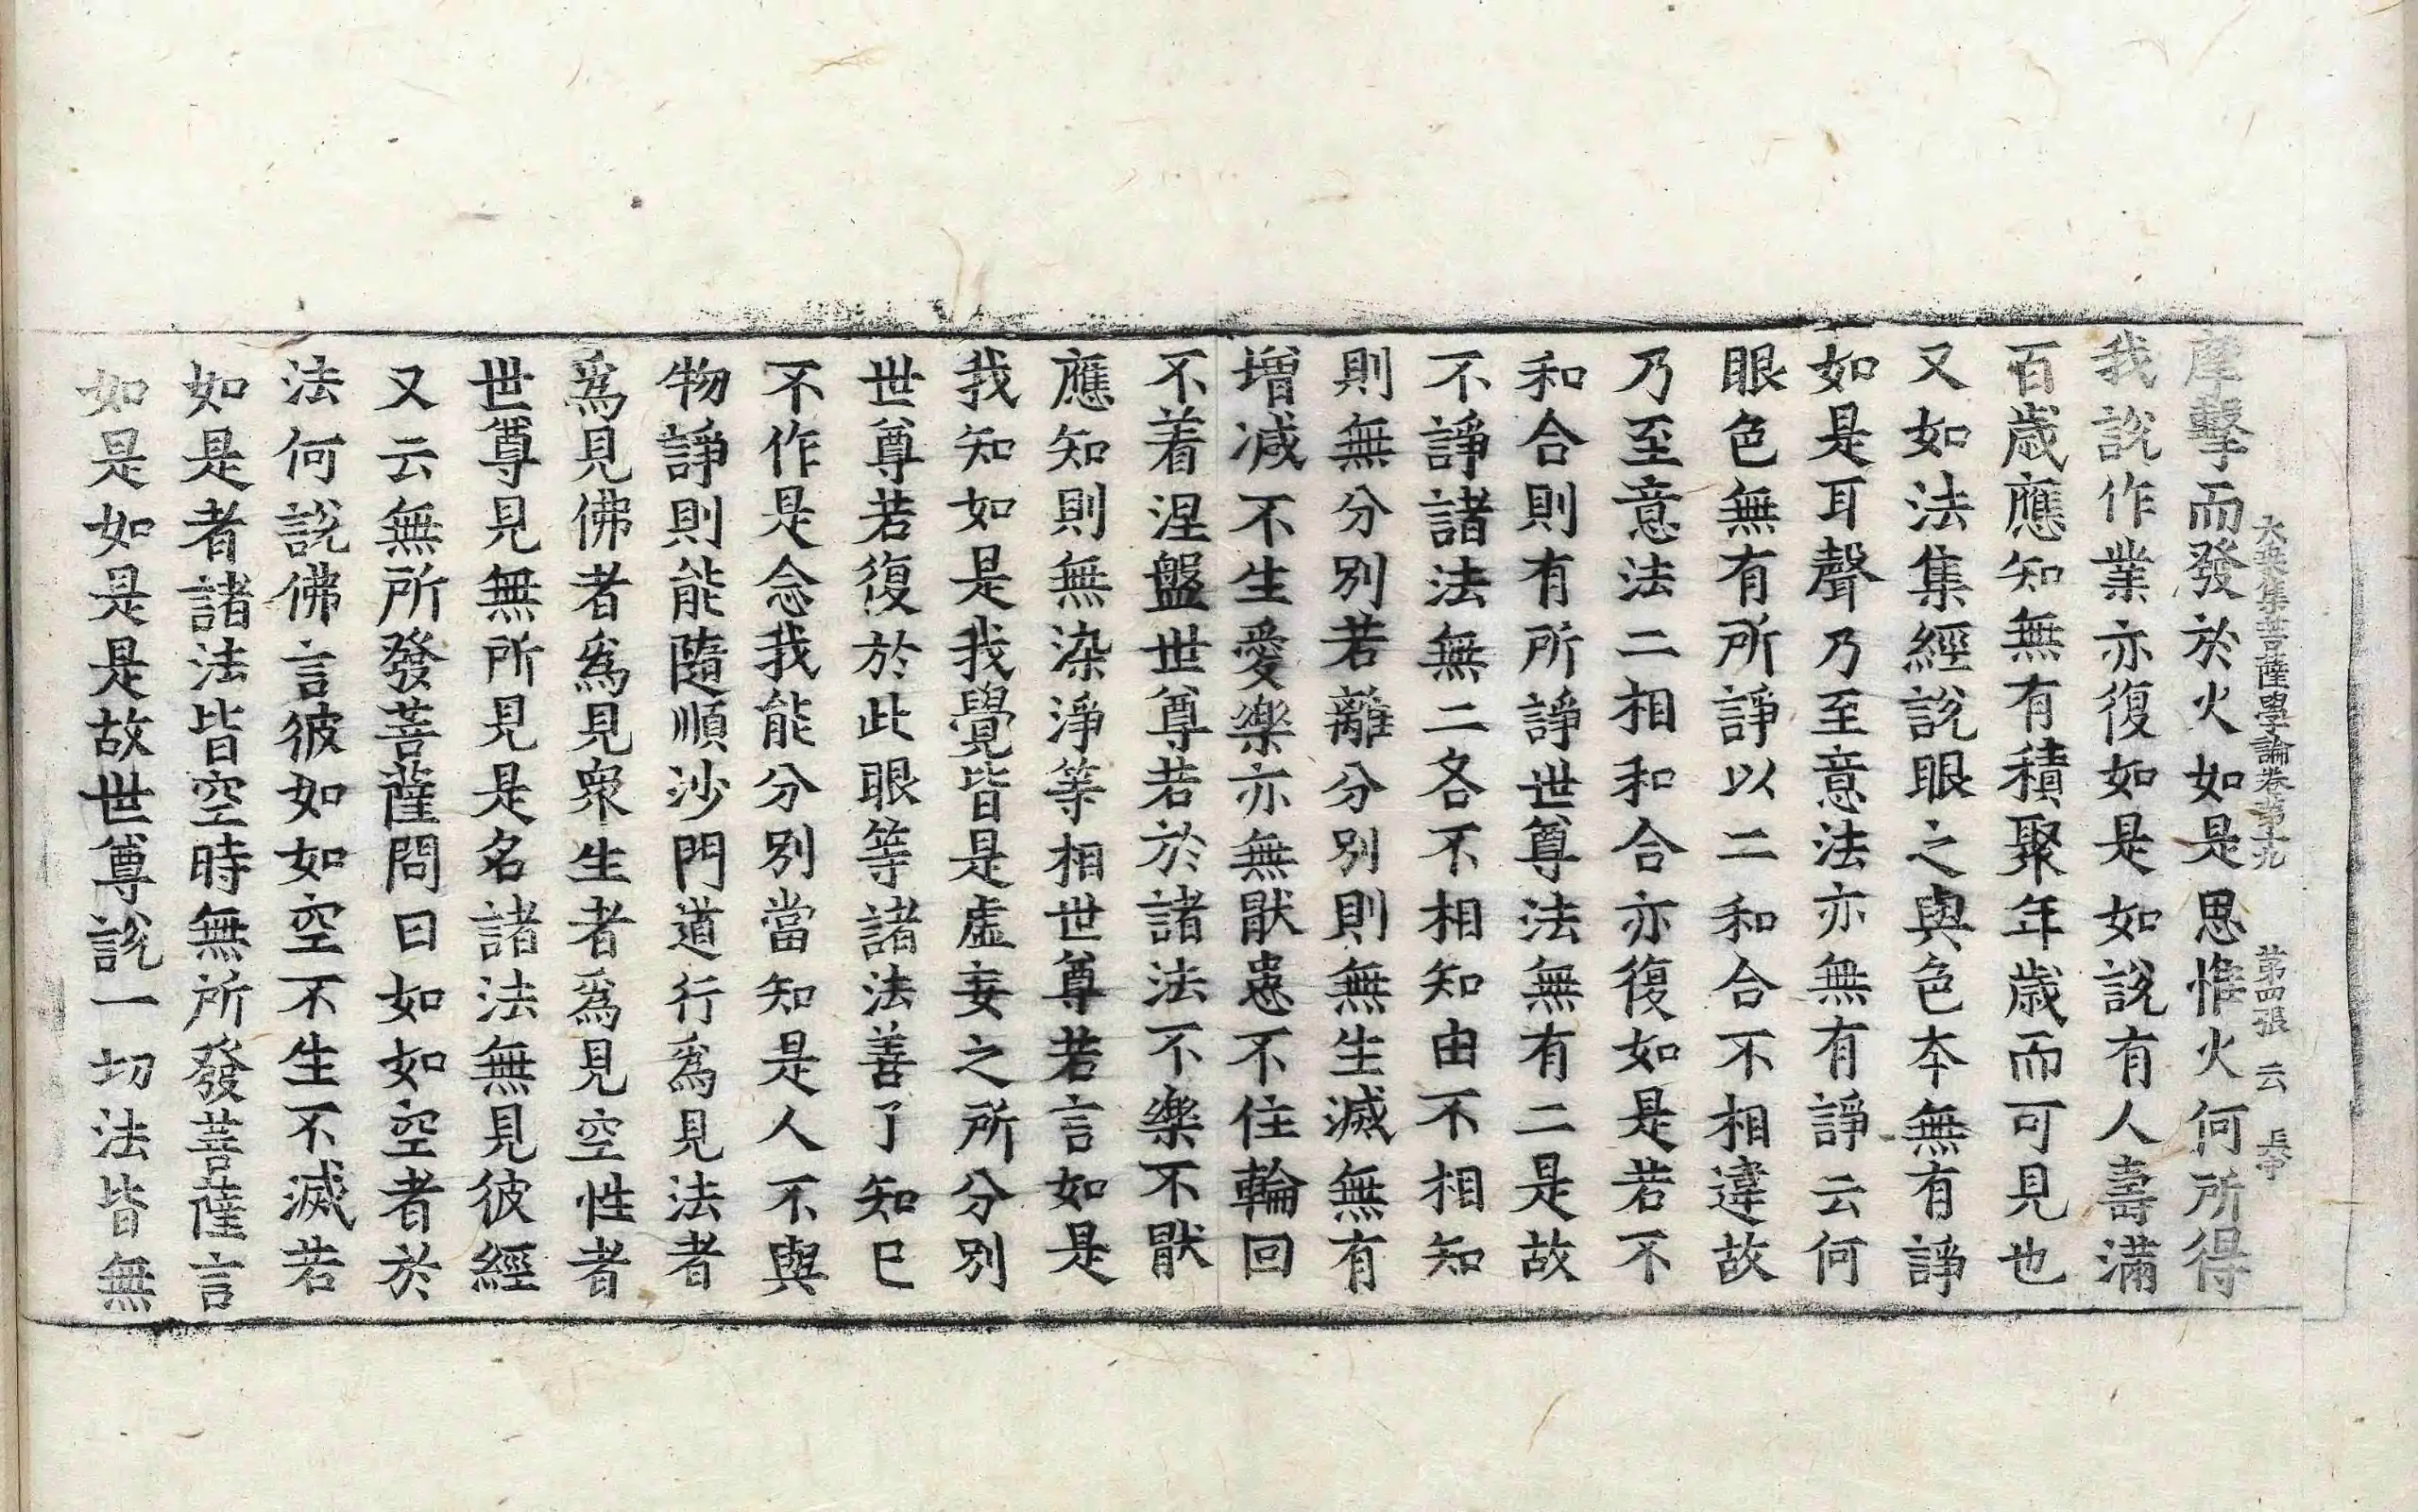 大乘集菩薩學論卷第十九 第四張 云
摩擊而發於火如是思惟火何所得
我說作業亦復如是如說有人壽滿
百歲應知無有積聚年歲而可見也
又如法集經說眼之與色本無有諍
如是耳聲乃至意法亦無有諍云何
眼色無有所諍以二和合不相違故
乃至意法二相和合亦復如是若不
和合則有所諍世尊法無有二是故
不諍諸法無二各不相知由不相知
則無分別若離分別則無生滅無有
增減不生愛樂亦無厭患不住輪回
不着涅盤世尊若於諸法不樂不厭
應知則無染淨等相世尊若言如是
我知如是我覺皆是虛妄之所分別
世尊若復於此眼等諸法善了知已
不作是念我能分別當知是人不與
物諍則能隨順沙門道行爲見法者
爲見佛者爲見衆生者爲見空性者
世尊見無所見是名諸法無見彼經
又云無所發菩薩問曰如如空者於
法何說佛言彼如如空不生不滅若
如是者諸法皆空時無所發菩薩言
如是如是是故世尊說一切法皆無